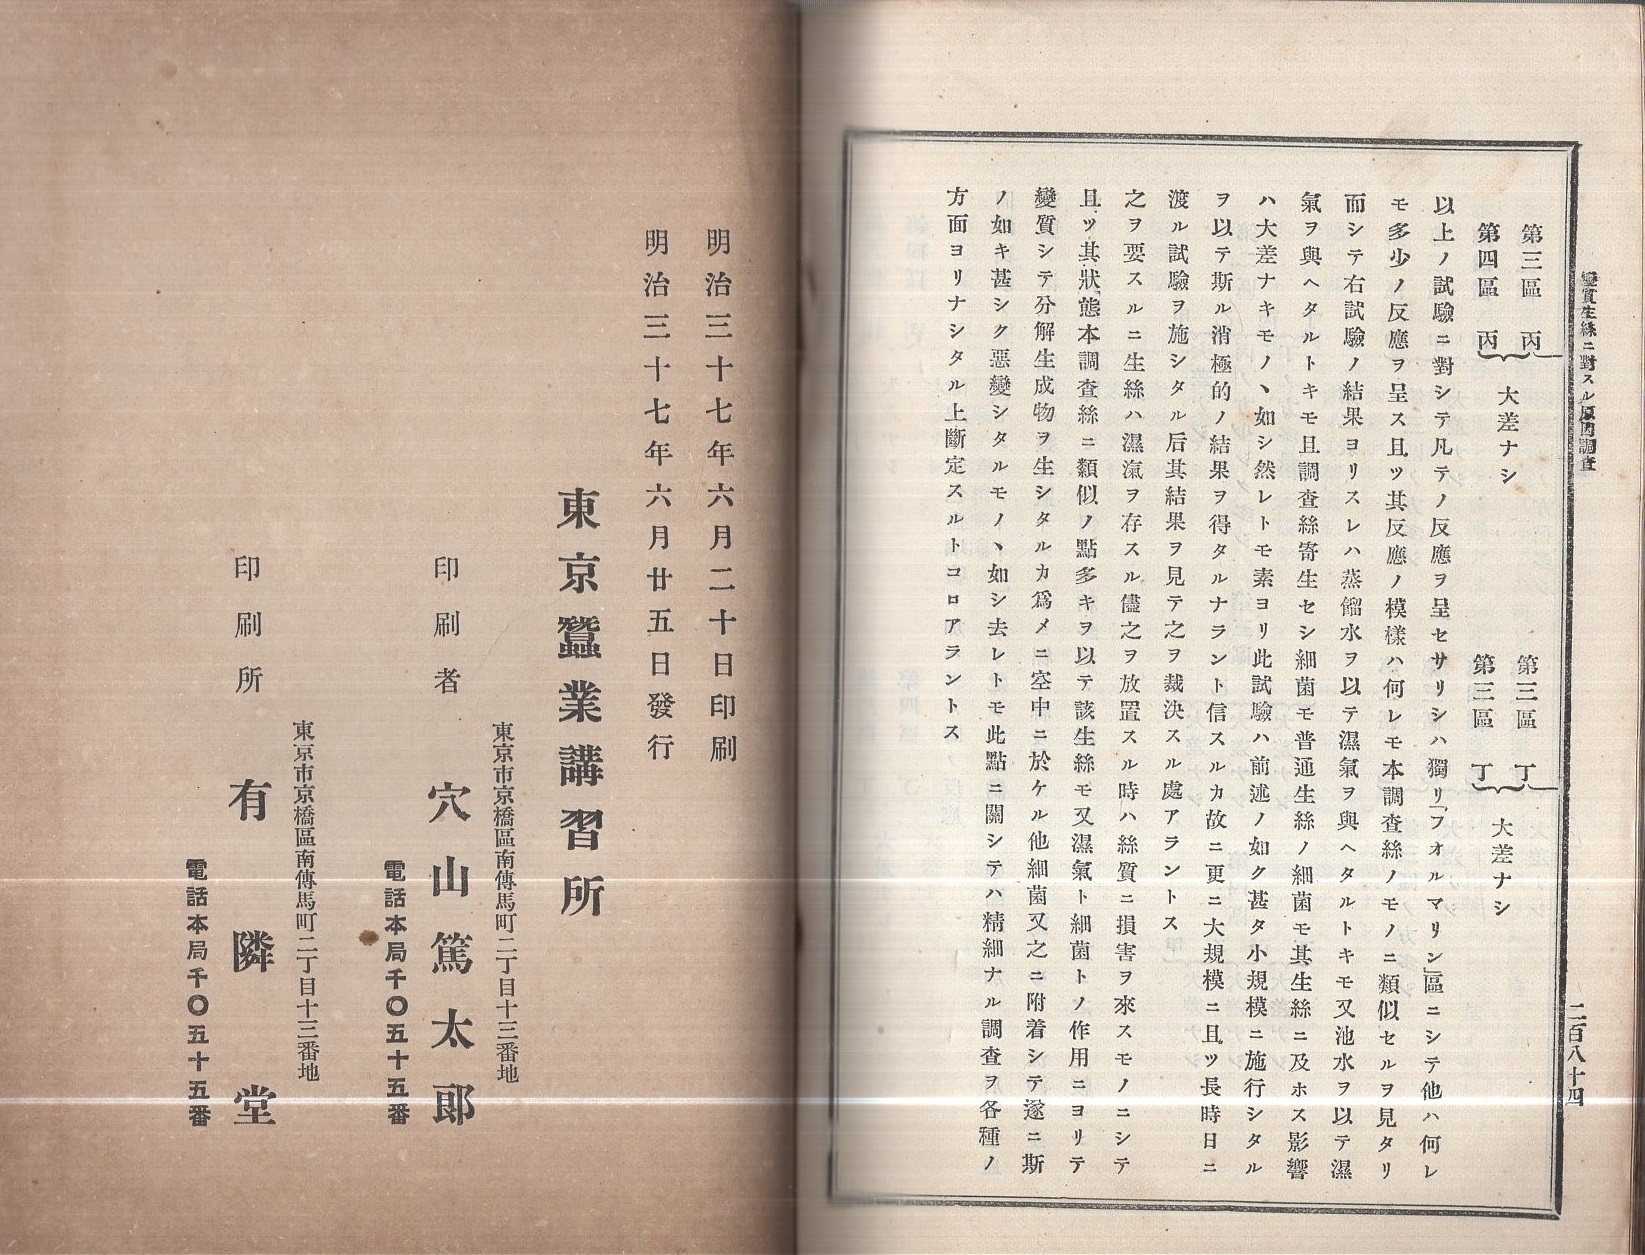 變質生絲ニ對スル原因調査
二百八十四
第三區 丙
第四區 丙
大差ナシ
第三區 丁
第三區 丁
大差ナシ
以上ノ試驗ニ對シテ凡テノ反應ヲ呈セサリシハ獨リ「フオルマリン」區ニシテ他ハ何レ
モ多少ノ反應ヲ呈ス且ツ其反應ノ模樣ハ何レモ本調査絲ノモノニ類似セルヲ見タリ
而シテ右試驗ノ結果ヨリスレハ蒸餾水ヲ以テ濕氣ヲ與ヘタルトキモ又池水ヲ以テ濕
氣ヲ與ヘタルトキモ且調査絲寄生セシ細菌モ普通生絲ノ細菌モ其生絲ニ及ホス影響
ハ大差ナキモノヽ如シ然レトモ素ヨリ此試驗ハ前述ノ如ク甚タ小規模ニ施行シタル
ヲ以テ斯ル消極的ノ結果ヲ得タルナラント信スルカ故ニ更ニ大規模ニ且ツ長時日ニ
渡ル試驗ヲ施シタル后其結果ヲ見テ之ヲ裁決スル處アラントス
之ヲ要スルニ生絲ハ濕氣ヲ存スル儘之ヲ放置スル時ハ絲質ニ損害ヲ來スモノニシテ
且ツ其狀態本調査絲ニ類似ノ點多キヲ以テ該生絲モ又濕氣ト細菌トノ作用ニヨリテ
變質シテ分解生成物ヲ生シタルカ爲メニ空中ニ於ケル他細菌又之ニ附着シテ遂ニ斯
ノ如キ甚シク惡變シタルモノヽ如シ去レトモ此點ニ關シテハ精細ナル調査ヲ各種ノ
方面ヨリナシタル上斷定スルトコロアラントス
明治三十七年六月二十日印刷
明治三十七年六月廿五日發行
東京蠶業講習所
東京市京橋區南傳馬町二丁目十三番地
印刷者 穴山篤太郎
電話本局千〇五十五番
東京市京橋區南傳馬町二丁目十三番地
印刷所 有隣堂
電話本局千〇五十五番